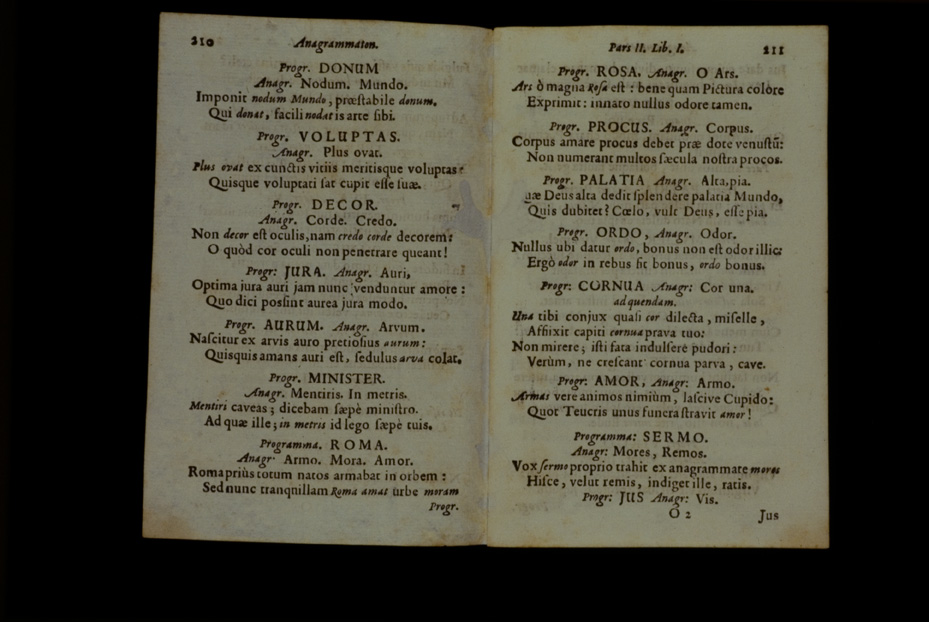 210 Anagrammaton.
Progr. DONUM
Anagr. Nodum. Mundo.
Imponit nodum Mundo, præſtabile donum.
Qui donat, facili nodat is arte ſibi.
Progr. VOLUPTAS.
Anagr. Plus ovat.
Plus ovat ex cunctis vitiis meritisque voluptas:
Quisque voluptati ſat cupit eſſe ſuæ.
Progr. DECOR.
Anagr. Corde. Credo.
Non decor eſt oculis, nam credo corde decorem:
O quòd cor oculi non penetrare queant!
Progr: JURA. Anagr. Auri,
Optima jura auri jam nunc venduntur amore:
Quo dici poſſint aurea jura modo.
Progr. AURUM. Anagr. Arvum.
Naſcitur ex arvis auro pretioſius aurum:
Quisquis amans auri eſt, ſedulus arva colat.
Progr. MINISTER.
Anagr. Mentiris. In metris.
Mentiri caveas; dicebam ſæpè miniſtro.
Ad quæ ille; in metris id lego ſæpè tuis.
Programma. ROMA.
Anagr. Armo. Mora. Amor.
Roma priùs totum natos armabat in orbem:
Sed nunc tranquillam Roma amat urbe moram
Progr.
Pars II. Lib. I. 211
Progr. ROSA. Anagr. O Ars.
Ars ò magna Roſa eſt: bene quam Pictura colòre
Exprimit: innato nullus odore tamen.
Progr. PROCUS. Anagr. Corpus.
Corpus amare procus debet præ dote venuſtū:
Non numerant multos ſæcula noſtra procos.
Progr. PALATIA Anagr. Alta, pia.
uæ Deus alta dedit ſplendere palatia Mundo,
Quis dubitet? Cœlo, vult Deus, eſſe pia.
Progr. ORDO, Anagr. Odor.
Nullus ubi datur ordo, bonus non eſt odor illic:
Ergò odor in rebus ſit bonus, ordo bonus.
Progr: CORNUA Anagr: Cor una.
ad quendam.
Una tibi conjux quaſi cor dilecta, miſelle,
Affixit capiti cornua prava tuo:
Non mirere; iſti fata indulſerè pudori:
Verùm, ne creſcant cornua parva, cave.
Progr: AMOR, Anagr: Armo.
Armas vere animos nimiùm, laſcive Cupido:
Quot Teucris unus funera ſtravit amor!
Programma: SERMO.
Anagr: Mores, Remos.
Vox ſermo proprio trahit ex anagrammate mores
Hiſce, velut remis, indiget ille, ratis.
Progr: JUS Anagr: Vis.
O 2 Jus